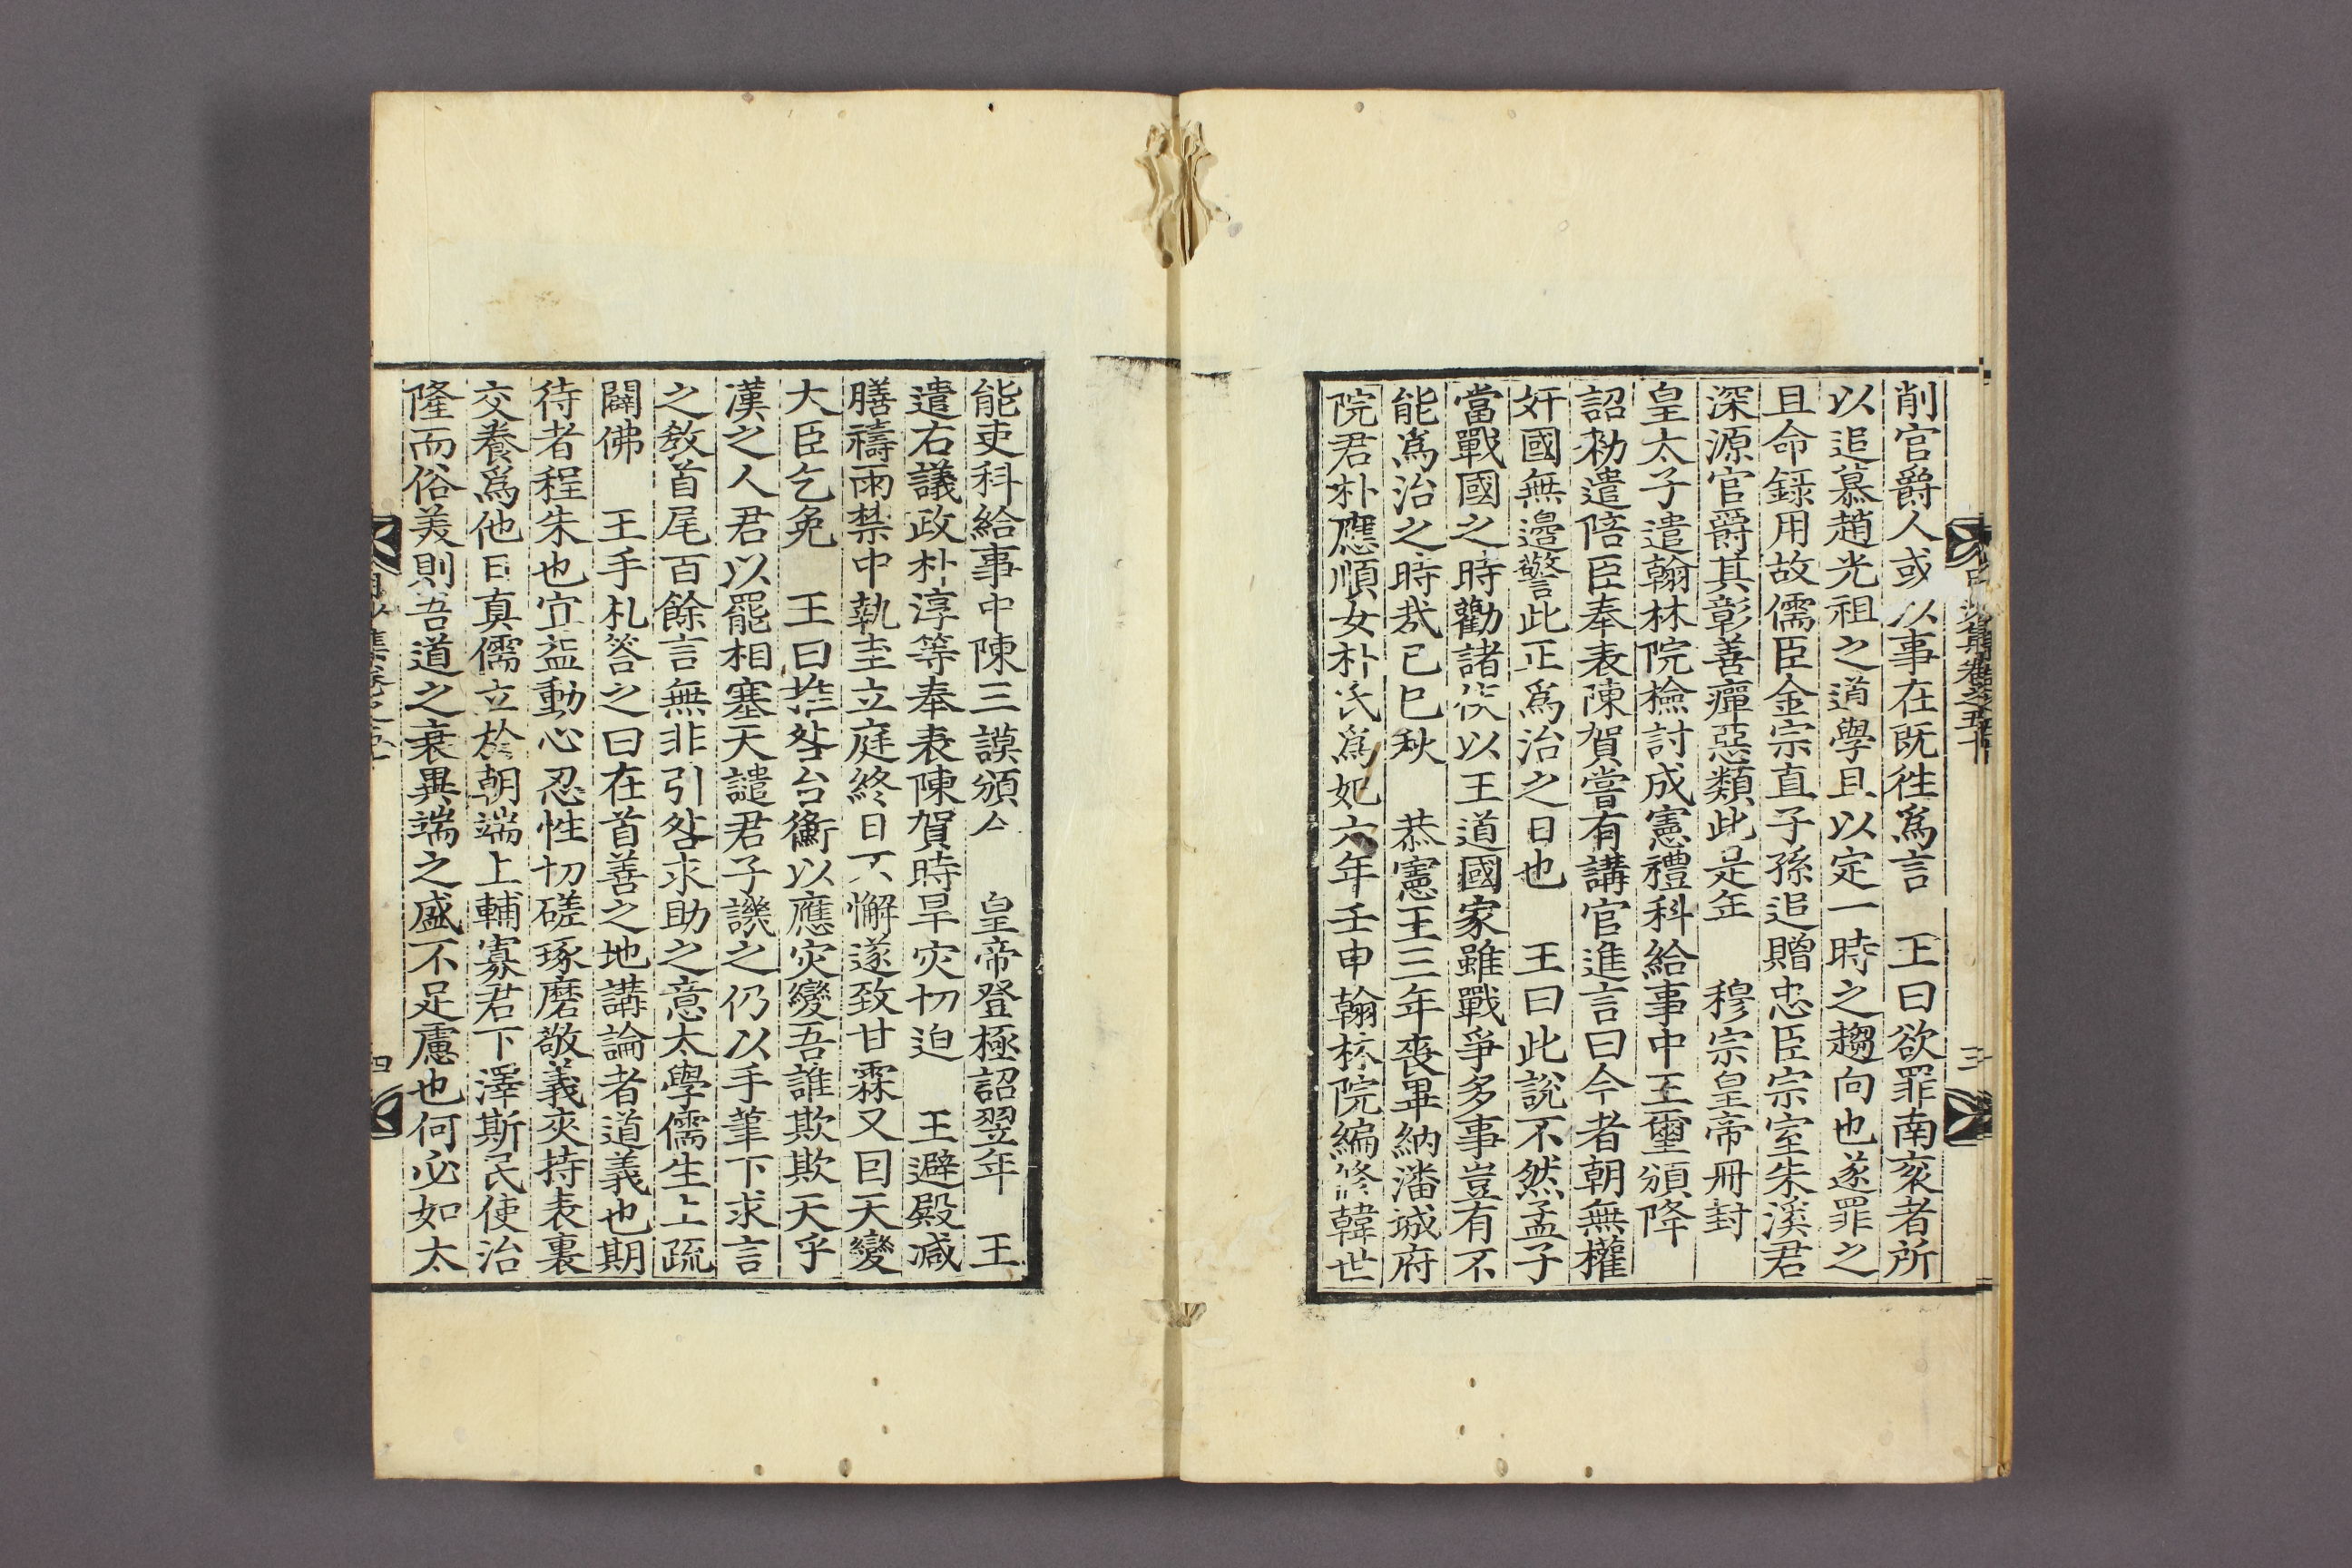 削官爵人或以事在既徃爲言 王曰欲罪南衮者所
以追慕趙光祖之道學且以定一時之趨向也遂罪之
且命錄用故儒臣金宗直子孫追贈忠臣宗室朱溪君
深源官爵其彰善癉惡類此是年 穆宗皇帝冊封
皇太子遣翰林院檢討成憲禮科給事中王璽頒降
詔勑遣陪臣奉表陳賀嘗有講官進言曰今者朝無權
奸國無邊警此正爲治之日也 王曰此說不然孟子
當戰國之時勸諸侯以王道國家雖戰爭多事豈有不
能爲治之時哉己巳秋 恭憲王三年喪畢納潘城府
院君朴應順女朴氏爲妃六年壬申翰林院編修韓世
能吏科給事中陳三謨頒 皇帝登極詔翌年 王
遣右議政朴淳等奉表陳賀時旱灾切迫 王避殿減
膳禱雨禁中執圭立庭終日不懈遂致甘霖又因天變
大臣乞免 王曰歸咎台衡以應灾變吾誰欺欺天乎
漢之人君以罷相塞天譴君子譏之仍以手筆下求言
之敎首尾百餘言無非引咎求助之意太學儒生上疏
闢佛 王手札答之曰在首善之地講論者道義也期
待者程朱也宜益動心忍性切磋琢磨敬義夾持表裏
交養爲他日真儒立於朝端上輔寡君下澤斯民使治
隆而俗美則吾道之衰異端之盛不足慮也何必如太
四